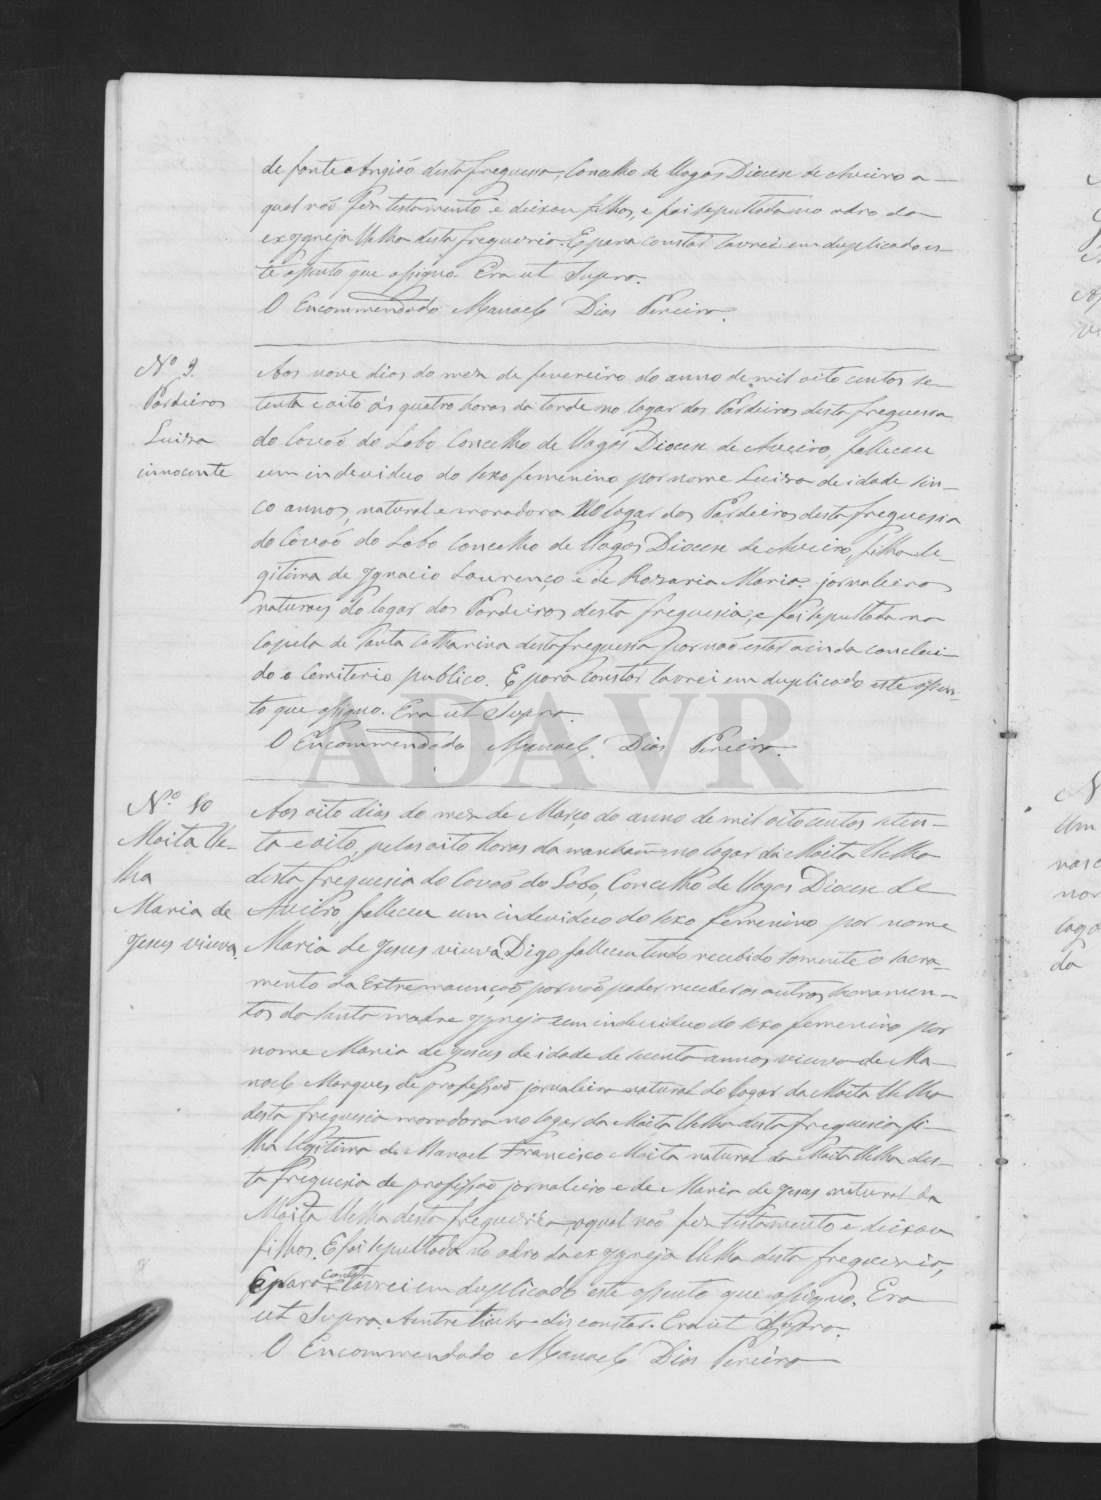 de fonte Angião desta freguesia, Concelho de Vagos Diocese de Aveiro a
qual não fez testamento e deixou filhos, e foi sepultada no adro da
ex Ygreja Velha desta freguesia. E para constar lavrei em duplicado es-
te assento que assigno. Era ut Supra.
O Encommendado Manoel Dias Pereira.
Nº 9.
Pardeiros
Luiza
innocente
Aos nove dias do mez de fevereiro do anno de mil oito centos se-
tenta e oito ás quatro horas da tarde no logar dos Pardeiros desta freguesia
do Covão do Lobo Concelho de Vagos Diocese de Aveiro, falleceu
um individuo do sexo femenino por nome Luiza de idade sin-
co annos, natural e moradora no logar dos Pardeiros desta freguesia
do Covão do Lobo Concelho de Vagos Diocese de Aveiro, filha le-
gitima de Ygnacio Lourenço e de Rozaria Maria jornaleiros
naturaes do logar dos Pardeiros desta freguesia, e foi sepultada na
capela de Santa Catharina desta freguesia por não estar ainda conclui-
do o Cemiterio publico. E para constar lavrei em duplicado este assen-
to que assigno. Era ut Supra.
O Encommendado Manoel Dias Pereira.
N.º 10
Moita Ve-
lha
Maria de
Jesus viuva.
Aos oito dias do mez de Março do anno de mil oitocentos seten-
ta e oito, pelas oito horas da manhaã no logar da Moita Velha
desta freguesia do Covão do Lobo, Concelho de Vagos Diocese de
Aveiro falleceu um individuo do sexo femenino por nome
Maria de Jesus viuva Digo falleceu tendo recebido somente o sacra-
mento da Extremaunção por não poder receber os outros sacramen-
tos da Santa madre Ygreja um individuo do sexo femenino por
nome Maria de Jesus de idade de annos viuva de Ma-
noel Marques de profissão jornaleira natural do logar da Moita Velha
desta freguesia moradora no logar da Moita Velha desta freguesia fi-
lha legitima de Manoel Francisco Moita natural da Moita Velha des-
ta freguesia de profissão jornaleiro e de Maria de Jesus natural da
Moita Velha desta freguesia, aqual não fez testamento e deixou
filhos. E foi sepultada no adro da ex Ygreja Velha desta freguesia,
E para constar lavrei em duplicado este assento que assigno. Era
ut Supra. A entre linha diz constar. Era ut Supra.
O Encommendado Manoel Dias Pereira
ADAVR